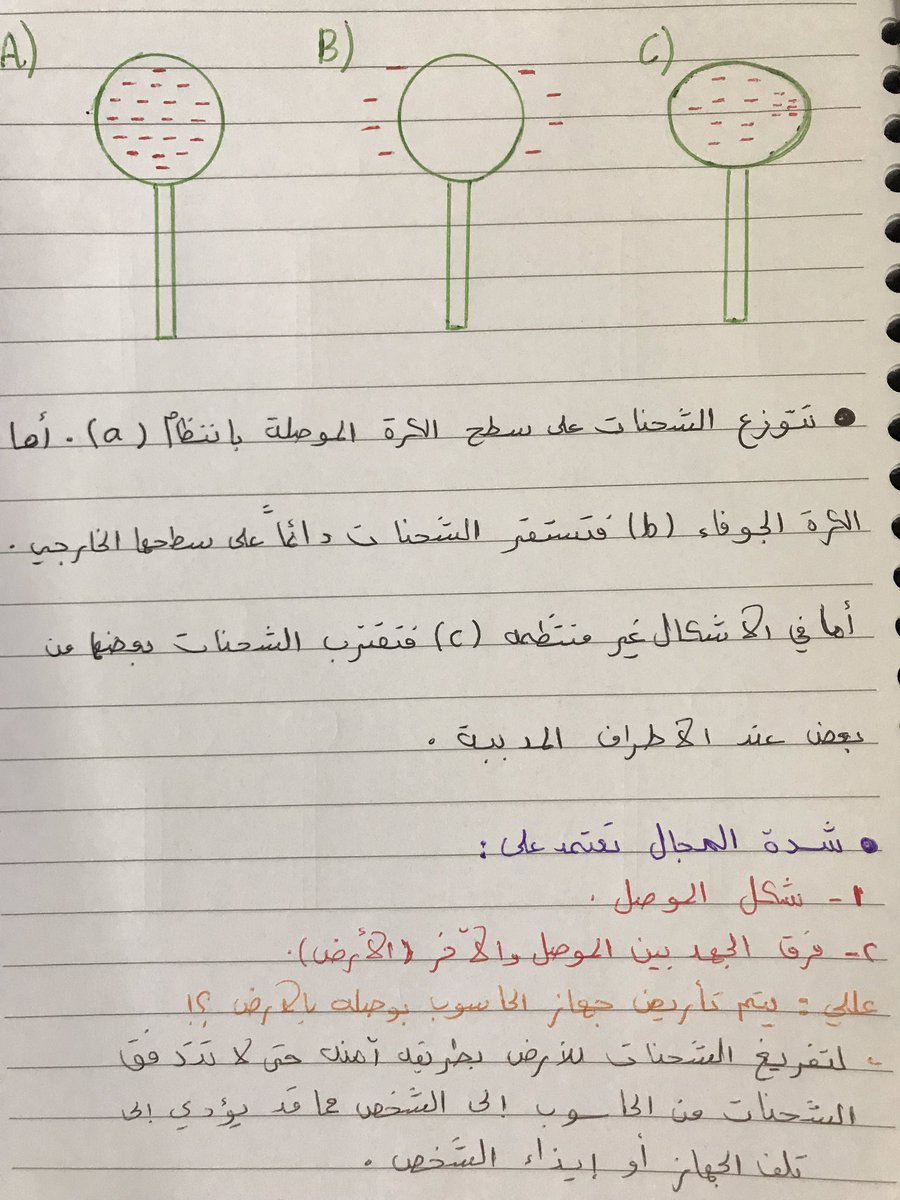 A) B) C)
● تتوزع الشحنات على سطح الكرة الموصلة بانتظام (a). أما
الكرة الجوفاء (b) فتستقر الشحنات دائماً على سطحها الخارجي.
أما في الاشكال غير منتظمه (c) فتقترب الشحنات بعضها من
بعض عند الاطراف المدببة.
● شدة المجال تعتمد على:
١- شكل الموصل.
٢- فرق الجهد بين الموصل والآخر (الأرض).
عللي: يتم تأريض جهاز الحاسوب بوصله بالارض ؟!
- لتفريغ الشحنات للأرض بطريقه آمنه حتى لا تتدفق
الشحنات من الحاسوب إلى الشخص مما قد يؤدي إلى
تلف الجهاز أو إيذاء الشخص.